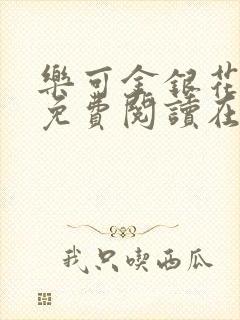 樂可金銀花
免費閱讀在
我只喫西瓜